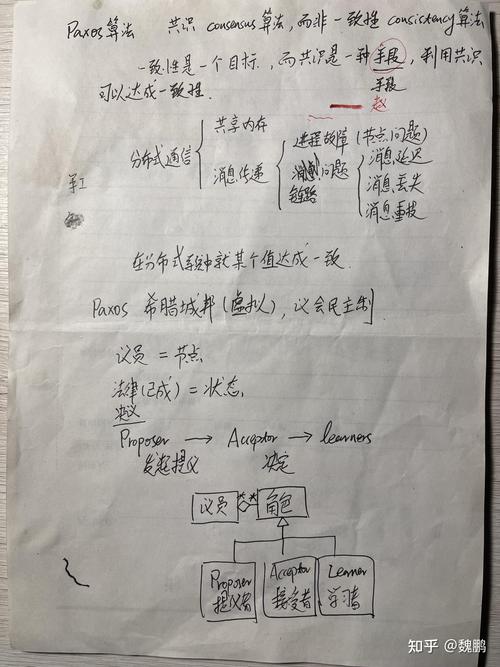 Paxos算法 共识 consensus算法,而非一致性 consistency算法
一致性是一个目标,而共识是一种手段,利用共识
手段
可以达成一致性.
赵
分布式通信
共享内存
消息传递
进程故障 (节点问题)
消息 问题
链路
消息延迟
消息丢失
消息重投
手工
在分布式系统中就某个值达成一致.
Paxos 希腊城邦(虚拟),议会民主制
议员 = 节点
法律(已成) = 状态.
决议
Proposer → Acceptor → learners
发起提议 决定
议员 * * 角色
Proposer 提议者
Acceptor 接受者
Learner 学习者
知乎 @魏鹏